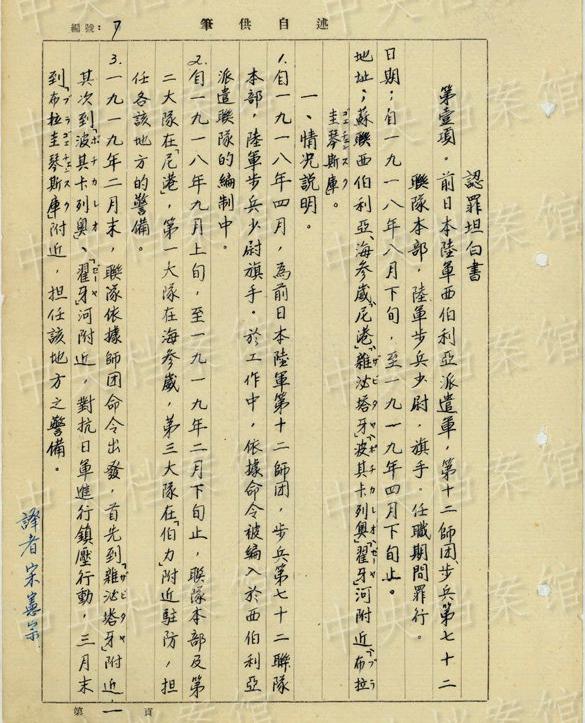 編號: 7
筆供自述
認罪坦白書
第壹項。前日本陸軍西伯利亞派遣軍,第十二師团步兵第七十二
聯隊本部,陸軍步兵少尉,旗手。任職期間罪行。
日期;自一九一八年八月下旬,至一九一九年四月下旬止。
地址;蘇聯西伯利亞海參崴「尼港」「雜法塔牙」「波其卡列奧」「翟牙」河附近「布拉
圭琴斯庫」。
一、情況說明。
1.自一九一八年四月,為前日本陸軍第十二師团,步兵第七十二聯隊
本部,陸軍步兵少尉旗手。於工作中,依據命令被編入於西伯利亞
派遣聯隊的編制中。
2.自一九一八年九月上旬,至一九一九年二月下旬止,聯隊本部及第
二大隊在「尼港」,第一大隊在海參崴,第三大隊在「伯力」附近駐防,担
任各該地方的警備。
3.一九一九年二月末,聯隊依據師团命令出發,首先到「雜法塔牙」附近,
其次到「波其卡列奧」、「翟牙」河附近,對抗日軍進行鎮壓行動,三月末
到「布拉圭琴斯庫」附近,担任該地方之警備。
譯者 宋憲宗
第一頁
中央档案馆